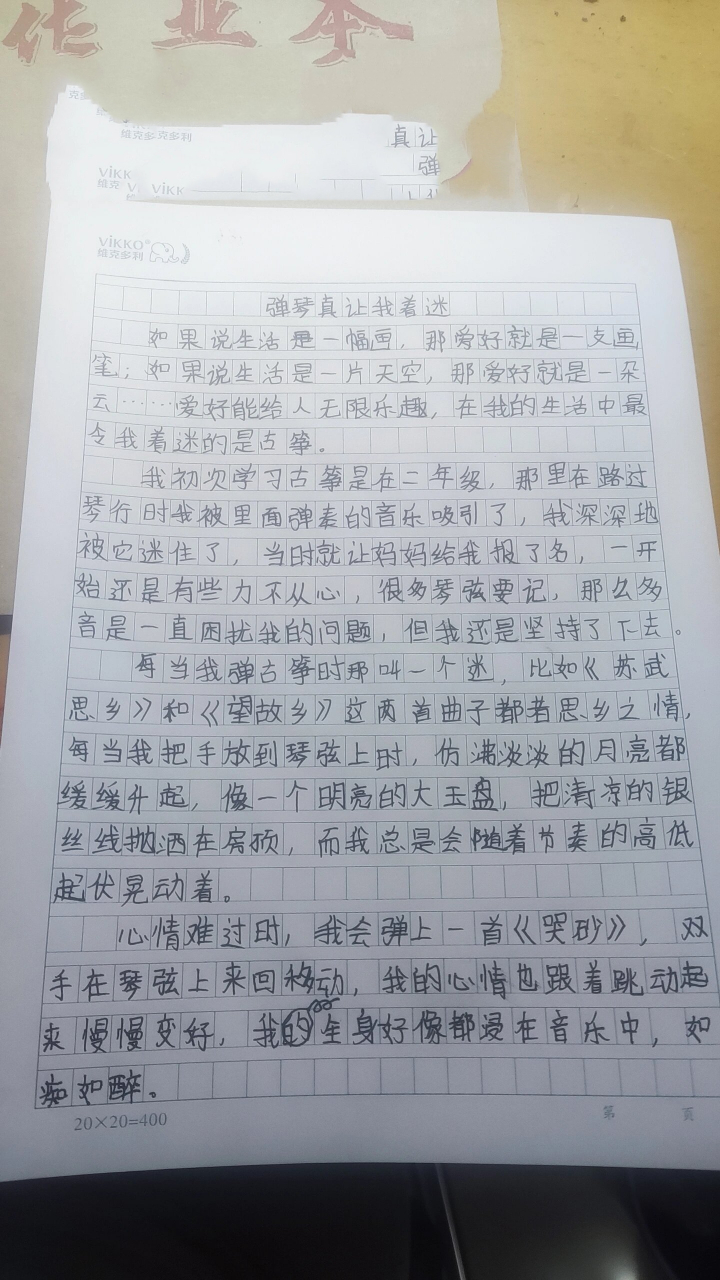 作业本
维克多克多利
真让
ViKK
弹
维克
ViKK
ViKKO®
维克多利
弹琴真让我着迷
如果说生活是一幅画，那爱好就是一支画
笔；如果说生活是一片天空，那爱好就是一朵
云……爱好能给人无限乐趣，在我的生活中最
令我着迷的是古筝。
我初次学习古筝是在二年级，那里在路过
琴行时我被里面弹奏的音乐吸引了，我深深地
被它迷住了，当时就让妈妈给我报了名，一开
始还是有些力不从心，很多琴弦要记，那么多
音是一直困扰我的问题，但我还是坚持了下去。
每当我弹古筝时那叫一个迷，比如《苏武
思乡》和《望故乡》这两首曲子都者思乡之情，
每当我把手放到琴弦上时，仿沸淡淡的月亮都
缓缓升起，像一个明亮的大玉盘，把清凉的银
丝线抛洒在房顶，而我总是会随着节奏的高低
起伏晃动着。
心情难过时，我会弹上一首《哭砂》，双
手在琴弦上来回移动，我的心情也跟着跳动起
来慢慢变好，我的全身好像都浸在音乐中，如
痴如醉。
20×20=400
第 页